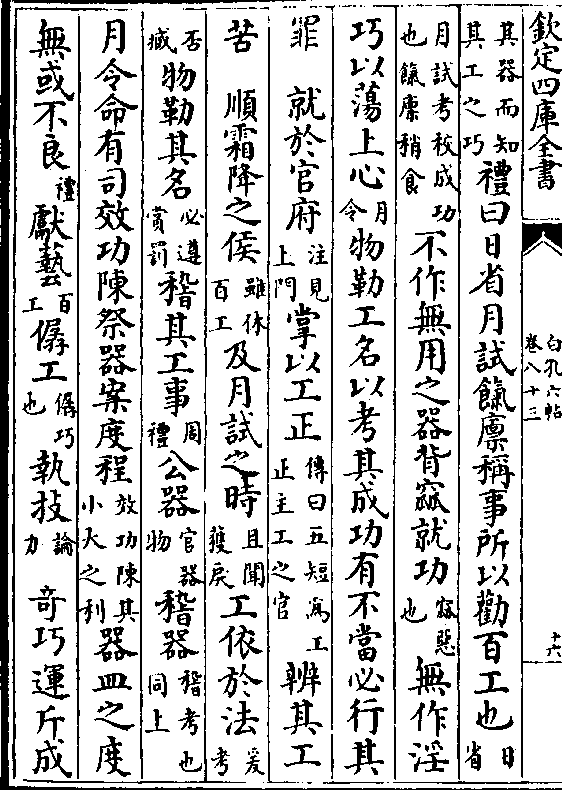 欽定四庫全書
白孔六帖
卷八十三
十六
其器而知其工之巧禮曰日省月試餼廩稱事所以勸百工也日省
月試考校成功也餼廩稍食不作無用之器背窳就功窳惡也無作淫
巧以蕩上心月令物勒工名以考其成功有不當必行其
罪 就於官府注見上門掌以工正傳曰五短為工正主工之官辨其工
苦 順霜降之侯雖休百工及月試之時且聞獲戾工依於法爰考
否臧物勒其名必遵賞罰稽其工事周禮公器官器物稽器稽考也同上
月令命有司效功陳祭器案度程效功陳其小大之利器皿之度
無或不良禮獻藝百工僝工僝巧也執技論力 奇巧運斤成